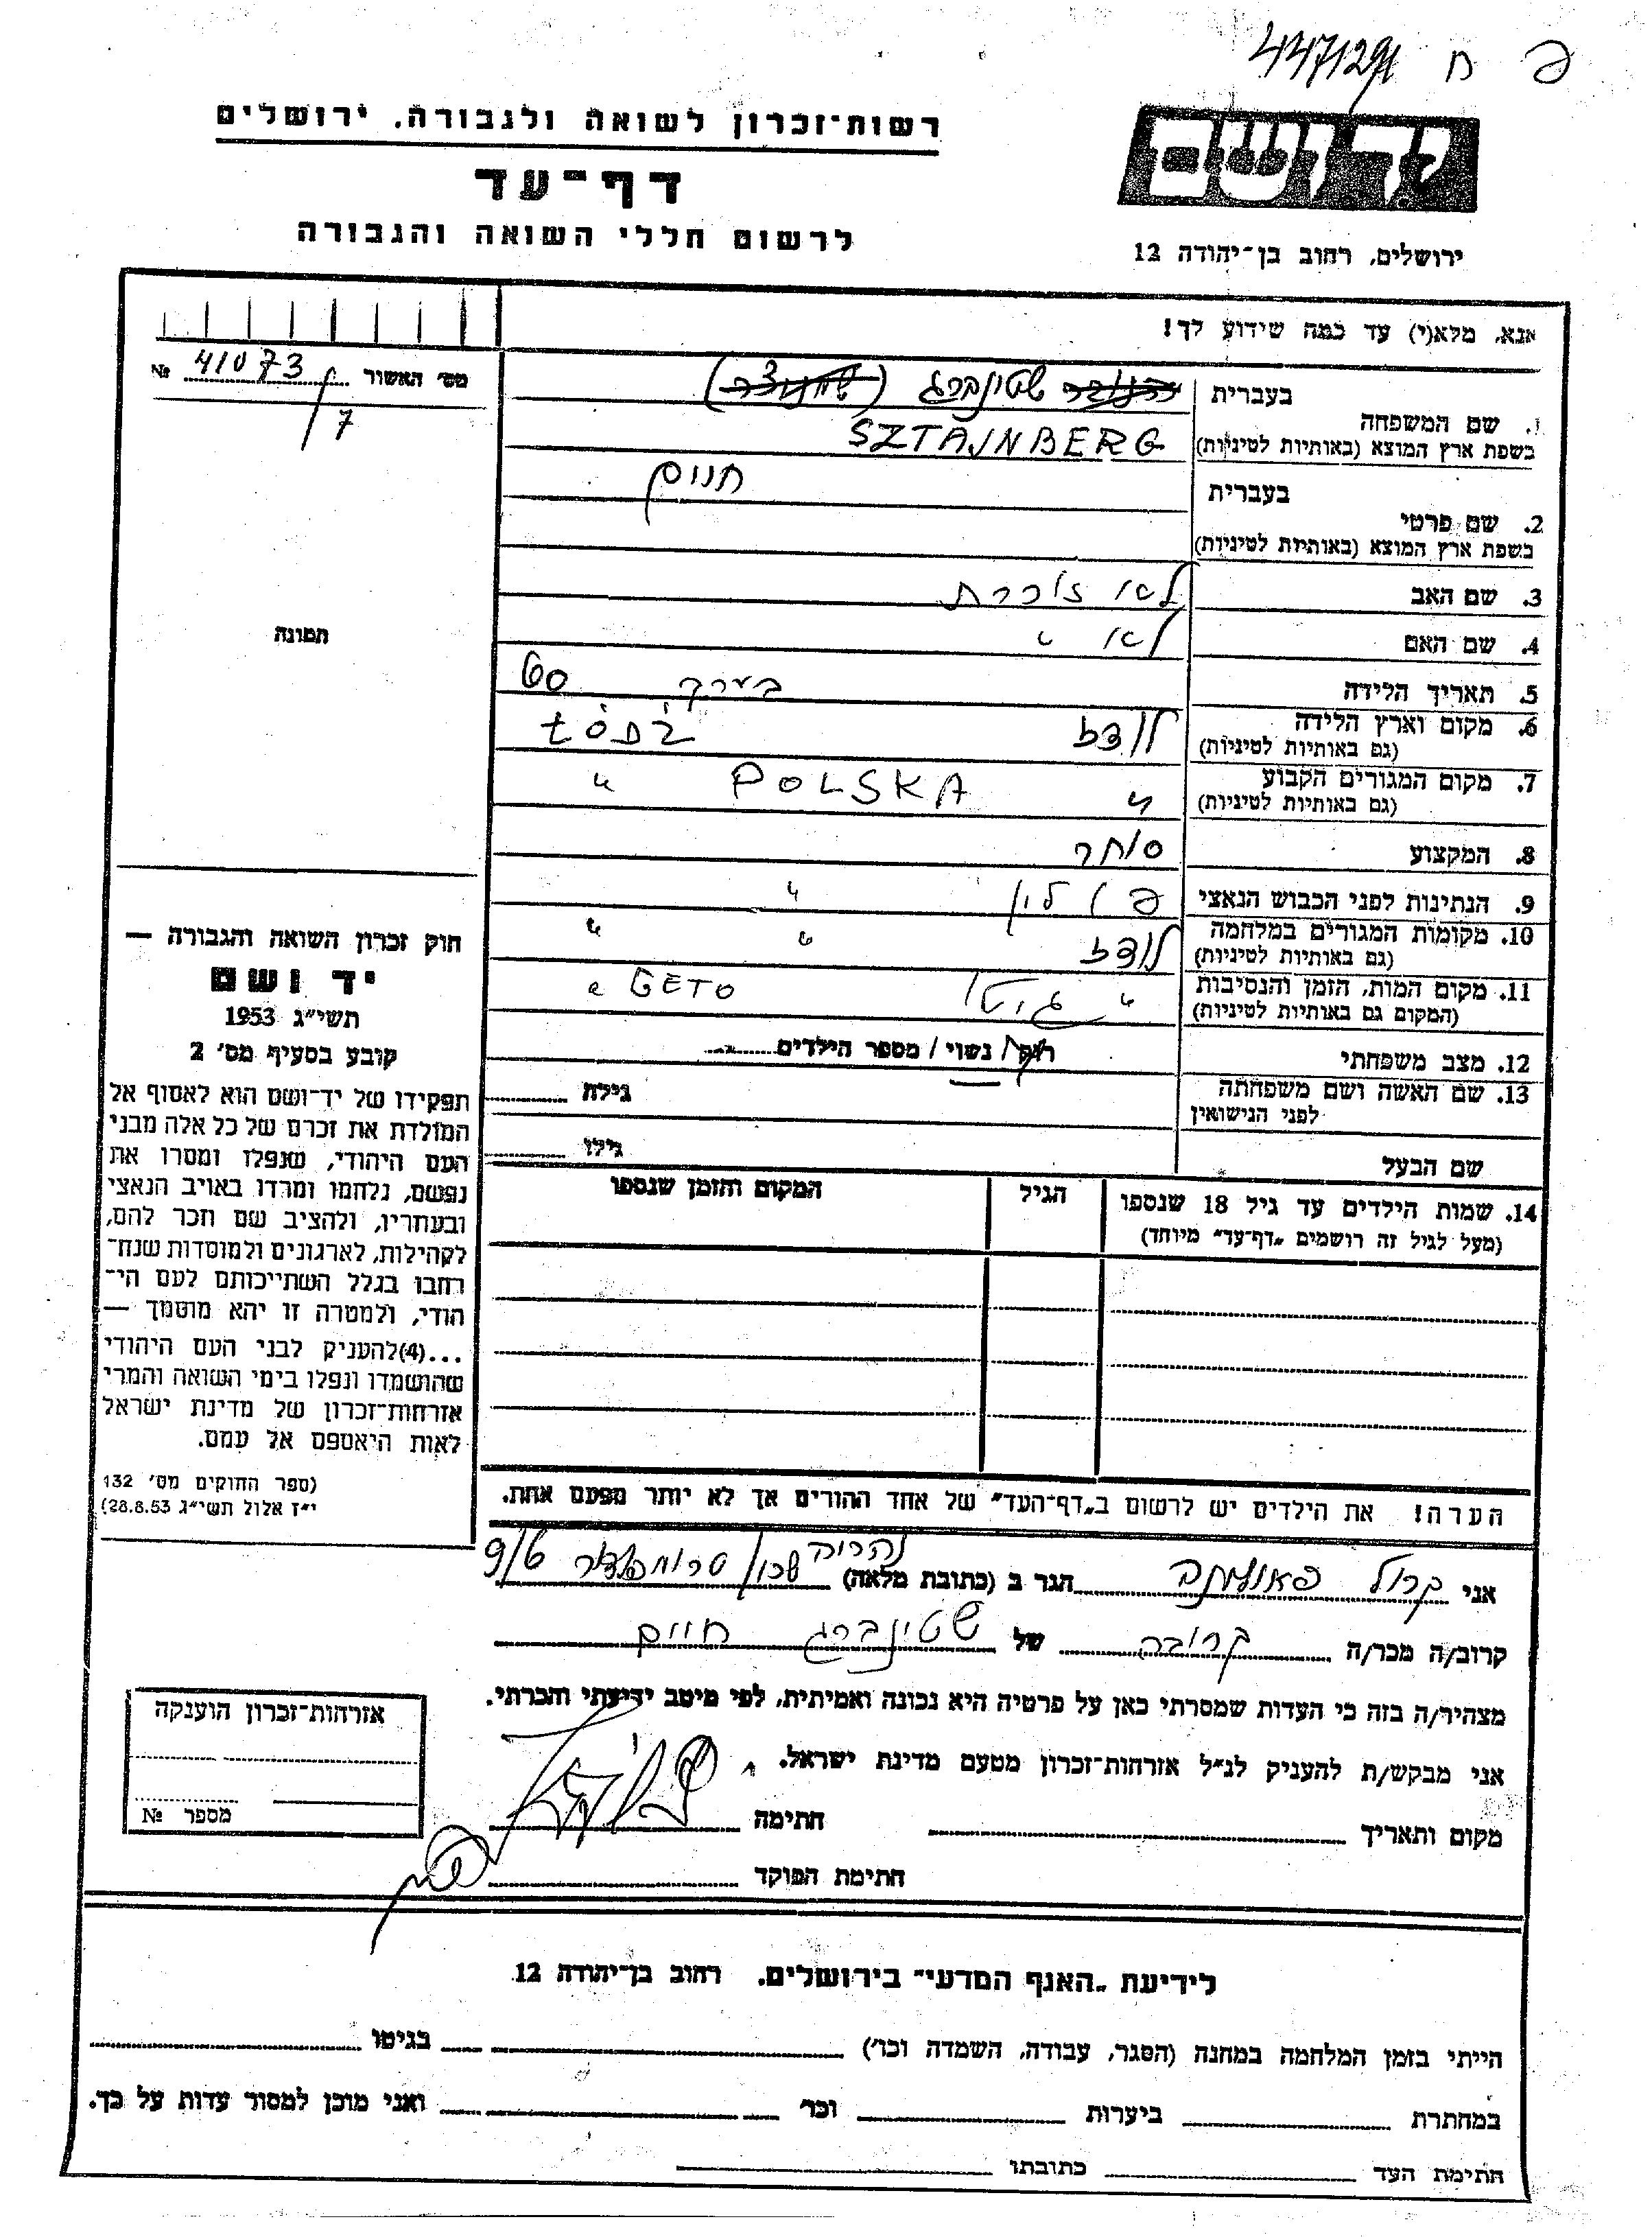 447129/ ח פ
ידושם
ירושלים, רחוב בן־יהודה 12
רשות־זכרון לשואה ולגבורה, ירושלים
דף־עד
לרשום חללי השואה והגבורה
אנא, מלא(י) עד כמה שידוע לך!
מס׳ האשור 41073 №
7
1. שם המשפחה
בעברית שטינברג
בשפת ארץ המוצא (באותיות לטיניות) SZTAJNBERG
2. שם פרטי
בעברית חיים
בשפת ארץ המוצא (באותיות לטיניות)
3. שם האב לא זוכרת
4. שם האם לא "
5. תאריך הלידה בערך 60
6. מקום וארץ הלידה לודז
(גם באותיות לטיניות)
7. מקום המגורים הקבוע " POLSKA "
(גם באותיות לטיניות)
8. המקצוע סוחר
9. הנתינות לפני הכבוש הנאצי פולין "
10. מקומות המגורים במלחמה לודז " "
(גם באותיות לטיניות)
11. מקום המות, הזמן והנסיבות " גיטו GETO "
(המקום גם באותיות לטיניות)
12. מצב משפחתי רווק / נשוי / מספר הילדים
13. שם האשה ושם משפחתה גילה
לפני הנישואין
שם הבעל גילו
14. שמות הילדים עד גיל 18 שנספו הגיל המקום והזמן שנספו
(מעל לגיל זה רושמים „דף־עד" מיוחד)
הערה! את הילדים יש לרשום ב„דף־העד" של אחד ההורים אך לא יותר מפעם אחת.
תמונה
חוק זכרון השואה והגבורה —
יד ושם
תשי״ג 1953
קובע בסעיף מס׳ 2
תפקידו של יד־ושם הוא לאסוף אל
המולדת את זכרם של כל אלה מבני
העם היהודי, שנפלו ומסרו את
נפשם, נלחמו ומרדו באויב הנאצי
ובעוזריו, ולהציב שם וזכר להם,
לקהילות, לארגונים ולמוסדות שנח־
רחבו בגלל השתייכותם לעם הי־
הודי, ולמטרה זו יהא מוסמך —
...(4)להעניק לבני העם היהודי
שהושמדו ונפלו בימי השואה והמרי
אזרחות־זכרון של מדינת ישראל
לאות היאספם אל עמם.
(ספר החוקים מס׳ 132
י״ז אלול תשי״ג 28.8.53)
אני הגר ב (כתובת מלאה) שכון 9/6
קרוב/ה מכר/ה קרובה של שטינברג חיים
מצהיר/ה בזה כי העדות שמסרתי כאן על פרטיה היא נכונה ואמיתית, לפי מיטב ידיעתי והכרתי.
אני מבקש/ת להעניק לנ״ל אזרחות־זכרון מטעם מדינת ישראל.
מקום ותאריך חתימה
חתימת הפוקד
אזרחות־זכרון הוענקה
מספר №
לידיעת „האגף המדעי" בירושלים, רחוב בן־יהודה 12
הייתי בזמן המלחמה במחנה (הסגר, עבודה, השמדה וכר׳) בגיטו
במחתרת ביערות וכר׳ ואני מוכן למסור עדות על כך.
חתימת העד כתובתו